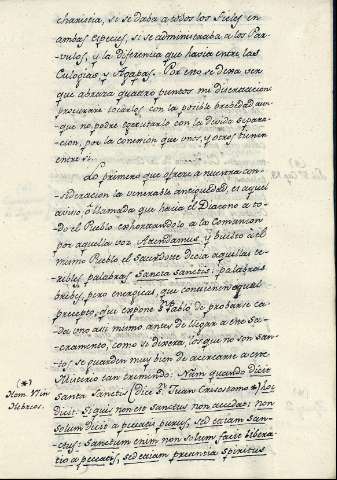 charistia, si se daba a todos los Fieles en
ambas especies, si se administraba a los Par-
vulos, y la diferencia que havia entre las
Eulogias y Agapas. Por esto se dexa ver
que abraza quatro puntos mi disertacion
procuraré tocarlos con la posible brebedad aun-
que no podre egecutarlo con la devida separa-
cion, por la conexion que unos, y otros tienen
entre si.
Lo primero que ofrece a nuestra con-
sideracion la venerable antiguedad, es aquel
aviso, ó llamada que hacia el Diacono a to-
do el Pueblo exhorrandolo a la Comunion
por aquella voz Atendamus y buelto a el
mismo Pueblo el Sacerdote decia aquellas te-
rribles palabras, Sancta Sanctis: palabras
brebes, pero energicas, que contienen aquel
precepto, que expone Sn Pablo de probarse ca-
da uno asi mismo antes de llegar a este Sa-
cramento, como si dixera, los que no son San-
tos se guarden muy bien de acercarse a este
Misterio tan tremendo: Nam quando dicit
Sancta Sanctis (dice Sn Juan Crisostomo *) hoc
dicit: Si quis non est Sanctus non accedat: non
solum dicit a peccatis purus, sed etiam sanc-
tus: Sanctum enim non solum facit libera-
tio a peccatis, sed etiam presentia Spiritus
(*)
Hom. 17 in
Hebreos.